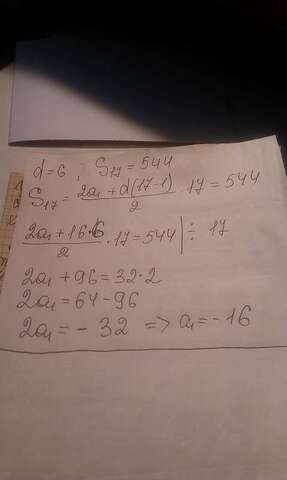 d=6 ; S₁₇ = 544
S₁₇ = (2a₁ + d(17-1))/2 · 17 = 544
(2a₁ + 16·6)/2 · 17 = 544 | ÷ 17
2a₁ + 96 = 32·2
2a₁ = 64 - 96
2a₁ = - 32 => a₁ = - 16